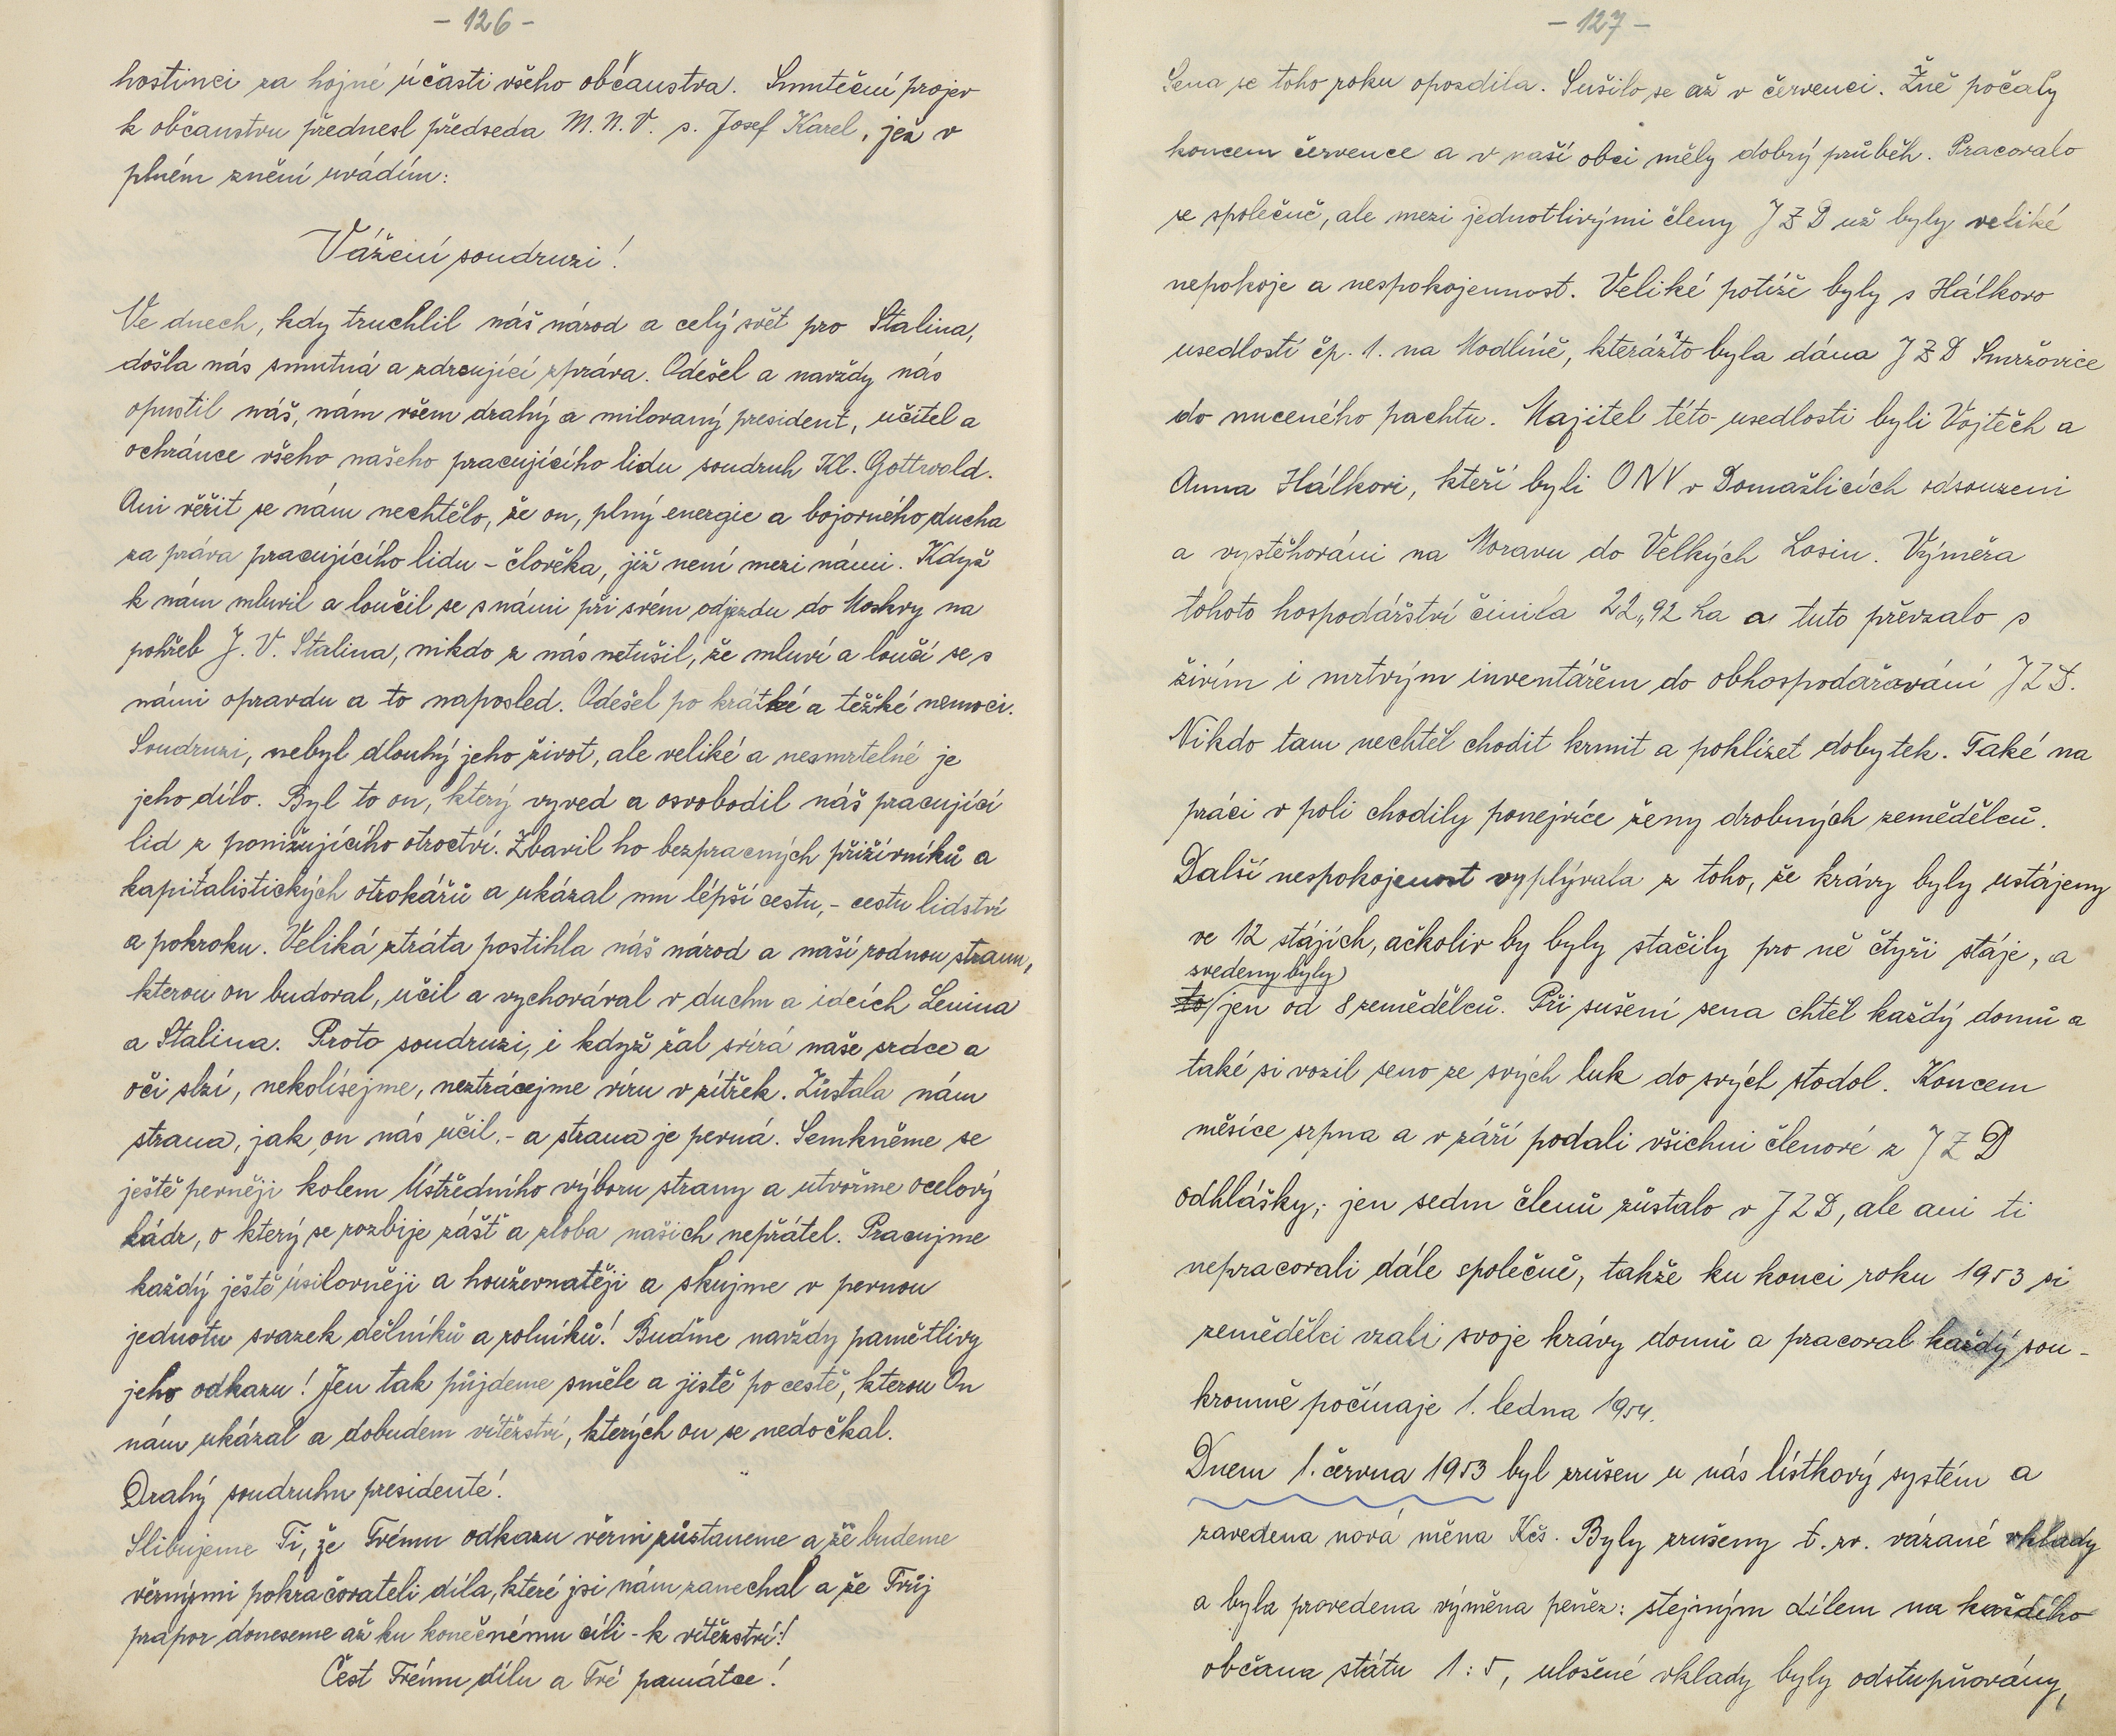 - 126 -
hostinci za hojné účasti všeho občanstva. Smuteční projev
k občanstvu přednesl předseda M. N. V. s. Josef Karel, jež v
plném znění uvádím:
Vážení soudruzi!
Ve dnech, kdy truchlil náš národ a celý svět pro Stalina,
došla nás smutná a zdrcující zpráva. Odešel a navždy nás
opustil náš, nám všem drahý a milovaný president, učitel a
ochránce všeho našeho pracujícího lidu soudruh Kl. Gottwald.
Ani věřit se nám nechtělo, že on, plný energie a bojovného ducha
za práva pracujícího lidu - člověka, již není mezi námi. Když
k nám mluvil a loučil se s námi při svém odjezdu do Moskvy na
pohřeb J. V. Stalina, nikdo z nás netušil, že mluví a loučí se s
námi opravdu a to naposled. Odešel po krátké a těžké nemoci.
Soudruzi, nebyl dlouhý jeho život, ale veliké a nesmrtelné je
jeho dílo. Byl to on, který vyved a osvobodil náš pracující
lid z ponižujícího otroctví. Zbavil ho bezpracných příživníků a
kapitalistických otrokářů a ukázal mu lépší cestu, - cestu lidství
a pokroku. Veliká ztráta postihla náš národ a naší rodnou stranu,
kterou on budoval, učil a vychovával v duchu a ideích Lenina
a Stalina. Proto soudruzi, i když žal svírá naše srdce a
oči slzí, nekolísejme, neztrácejme víru v zítřek. Zůstala nám
strana, jak on nás učil, - a strana je pevná. Semkněme se
ještě pevněji kolem Ústředního výboru strany a utvořme ocelový
kádr, o který se rozbije zášť a zloba našich nepřátel. Pracujme
každý ještě úsilovněji a houževnatěji a skujme v pevnou
jednotu svazek dělníků a rolníků! Buďme navždy pamětlivy
jeho odkazu! Jen tak půjdeme směle a jistě po cestě, kterou On
nám ukázal a dobudem vítězství, kterých on se nedočkal.
Drahý soudruhu presidente!
Slibujeme Ti, že Tvému odkazu věrni zůstaneme a že budeme
věrnými pokračovateli díla, které jsi nám zanechal a že Tvůj
prapor doneseme až ku konečnému cíli - k vítězství!
Čest Tvému dílu a Tvé památce!
- 127 -
Sena se toho roku opozdila. Sušilo se až v červenci. Žně počaly
koncem července a v naší obci měly dobrý průběh. Pracovalo
se společně, ale mezi jednotlivými členy JZD už byly veliké
nepokoje a nespokojennost. Veliké potíže byly s Hálkovo
usedlostí čp. 1. na Modlíně, kterážto byla dána JZD Smržovice
do nuceného pachtu. Majitel této usedlosti byli Vojtěch a
Anna Hálkovi, kteří byli ONV v Domažlicích odsouzeni
a vystěhováni na Moravu do Velkých Losin. Výměra
tohoto hospodářství činila 22,,92 ha a tuto převzalo s
živím i mrtvým inventářem do obhospodařování JZD.
Nikdo tam nechtěl chodit krmit a poklízet dobytek. Také na
práci v poli chodily ponejvíce ženy drobných zemědělců.
Další nespokojenost vyplývala z toho, že krávy byly ustájeny
ve 12 stájích, ačkoliv by byly stačily pro ně čtyři stáje, a
svedeny byly
to jen od 8 zemědělců. Při sušení sena chtěl každý domů a
také si vozil seno ze svých luk do svých stodol. Koncem
měsíce srpna a v září podali všichni členové z JZD
odhlášky; jen sedm členů zůstalo v JZD, ale ani ti
nepracovali dále společně, takže ku konci roku 1953 si
zemědělci vzali svoje krávy domů a pracoval každý sou-
kromně počínaje 1. ledna 1954.
Dnem 1. června 1953 byl zrušen u nás lístkový systém a
zavedena nová měna Kčs. Byly zrušeny t. zv. vázané vklady
a byla provedena výměna peněz: stejným dílem na každého
občana státu 1:5, uložené vklady byly odstupňovány,